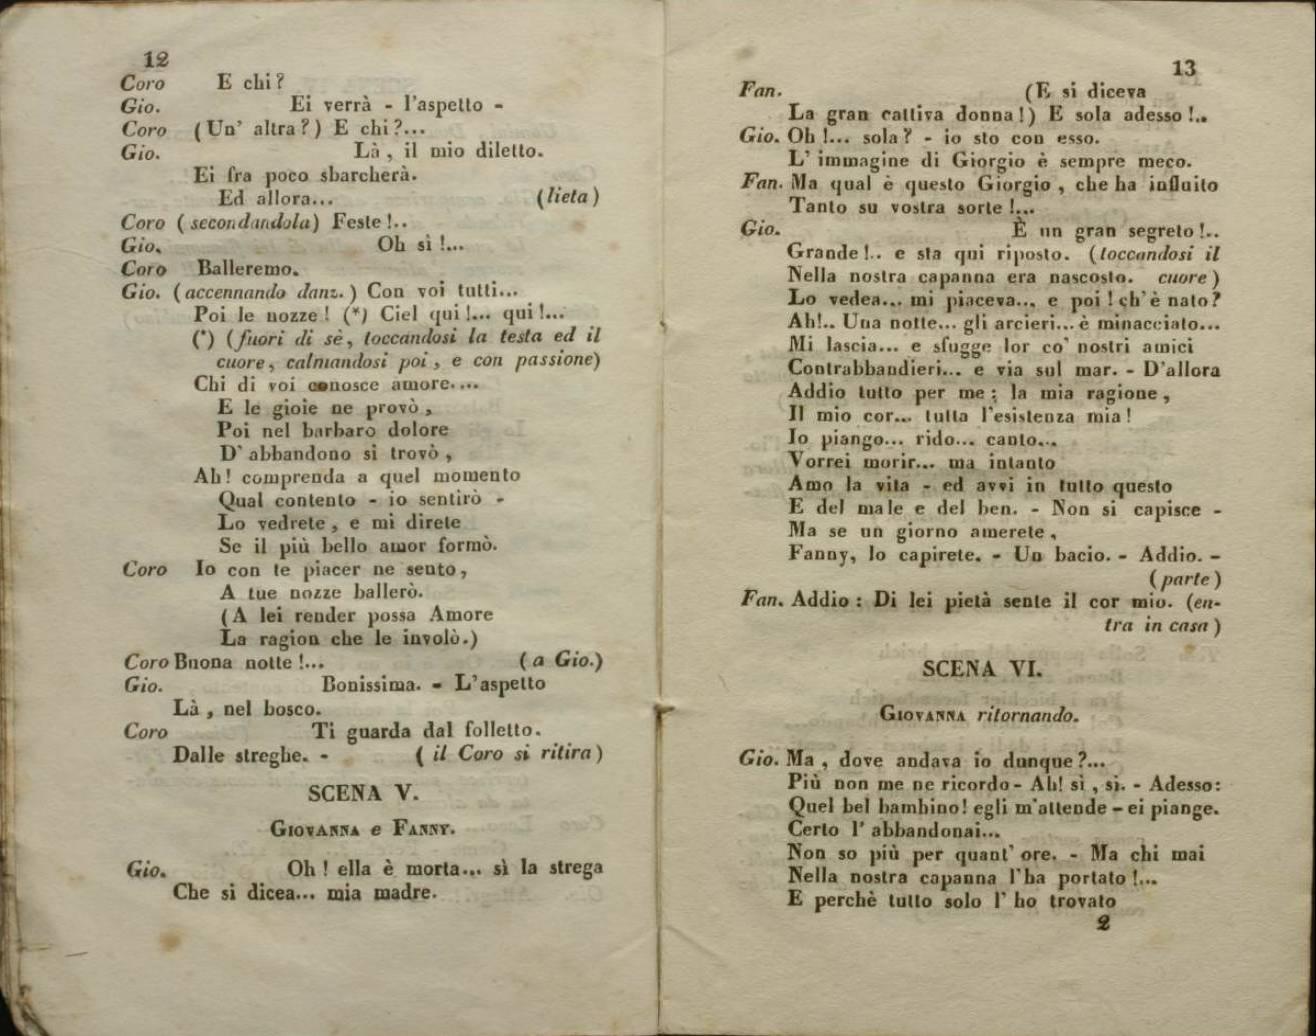 12
Coro E chi?
Gio. Ei verrà - l'aspetto -
Coro (Un' altra?) E chi?...
Gio. Là, il mio diletto.
Ei fra poco sbarcherà.
Ed allora... (lieta)
Coro (secondandola) Feste!..
Gio. Oh sì!...
Coro Balleremo.
Gio. (accennando danz.) Con voi tutti...
Poi le nozze! (*) Ciel qui!... qui!...
(*) (fuori di sè, toccandosi la testa ed il
cuore, calmandosi poi, e con passione)
Chi di voi conosce amore....
E le gioie ne provò,
Poi nel barbaro dolore
D' abbandono si trovò,
Ah! comprenda a quel momento
Qual contento - io sentirò -
Lo vedrete, e mi direte
Se il più bello amor formò.
Coro Io con te piacer ne sento,
A tue nozze ballerò.
(A lei render possa Amore
La ragion che le involò.)
Coro Buona notte!... (a Gio.)
Gio. Bonissima. - L'aspetto
Là, nel bosco.
Coro Ti guarda dal folletto.
Dalle streghe. - (il Coro si ritira)
SCENA V.
GIOVANNA e FANNY.
Gio. Oh! ella è morta... sì la strega
Che si dicea... mia madre.
13
Fan. (E si diceva
La gran cattiva donna!) E sola adesso!..
Gio. Oh!... sola? - io sto con esso.
L' immagine di Giorgio è sempre meco.
Fan. Ma qual è questo Giorgio, che ha influito
Tanto su vostra sorte!...
Gio. È un gran segreto!..
Grande!.. e sta qui riposto. (toccandosi il
Nella nostra capanna era nascosto. cuore)
Lo vedea... mi piaceva... e poi! ch'è nato?
Ah!.. Una notte... gli arcieri... è minacciato...
Mi lascia... e sfugge lor co' nostri amici
Contrabbandieri... e via sul mar. - D'allora
Addio tutto per me; la mia ragione,
Il mio cor... tutta l'esistenza mia!
Io piango... rido... canto...
Vorrei morir... ma intanto
Amo la vita - ed avvi in tutto questo
E del male e del ben. - Non si capisce -
Ma se un giorno amerete,
Fanny, lo capirete. - Un bacio. - Addio. -
(parte)
Fan. Addio: Di lei pietà sente il cor mio. (en-
tra in casa)
SCENA VI.
GIOVANNA ritornando.
Gio. Ma, dove andava io dunque?...
Più non me ne ricordo - Ah! sì, sì. - Adesso:
Quel bel bambino! egli m'attende - ei piange.
Certo l' abbandonai...
Non so più per quant' ore. - Ma chi mai
Nella nostra capanna l'ha portato!...
E perchè tutto solo l' ho trovato
2